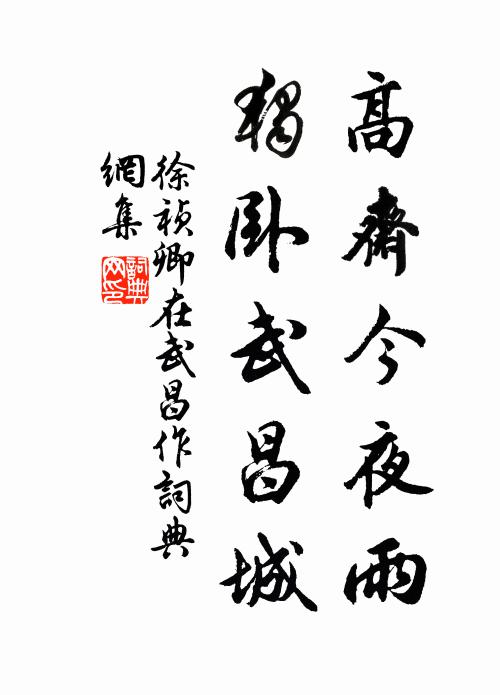 高齋今夜雨
獨卧武昌城
徐禎卿在武昌作詞典
網集
詞典網印